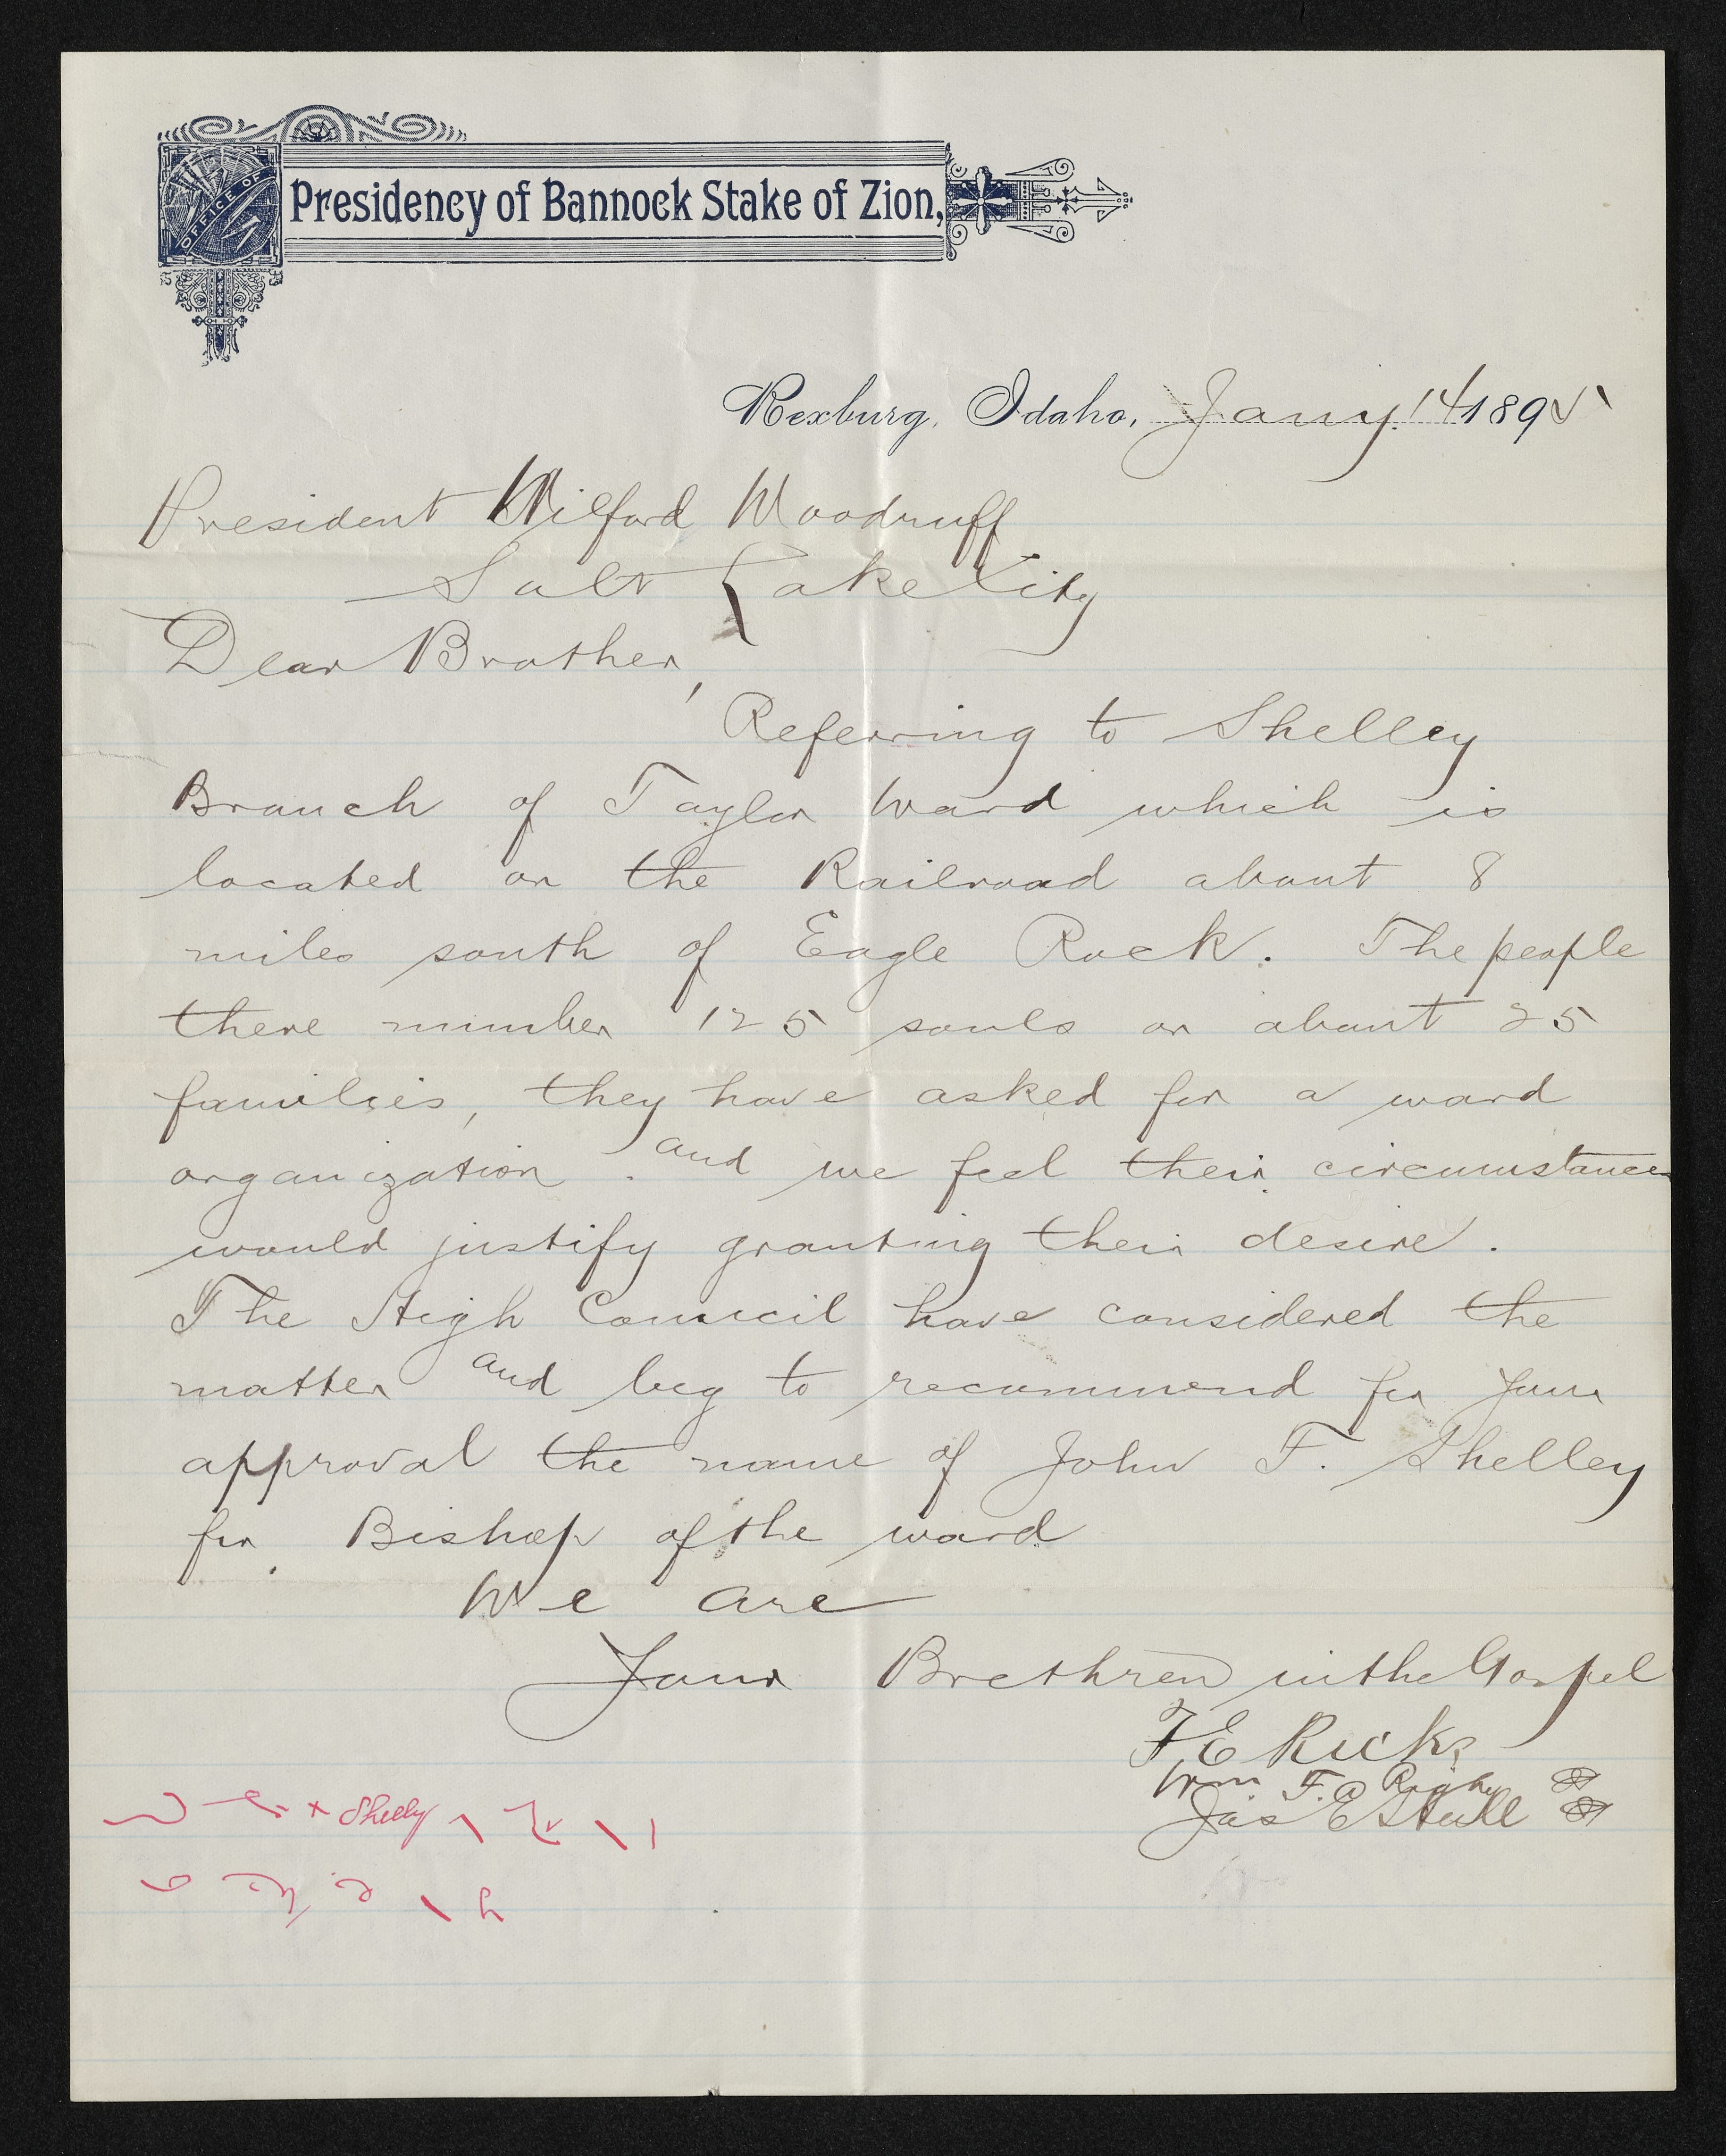 OFFICE OF
Presidency of Bannock Stake of Zion,
Rexburg, Idaho, Jany. 14 1895
President Wilford Woodruff
Salt Lake City
Dear Brother,
Referring to Shelley
Branch of Taylor Ward which is
located on the Railroad about 8
miles south of Eagle Rock. The people
there number 125 souls or about 25
families, they have asked for a ward
organization. and we feel their circumstances
would justify granting their desire.
The High Council have considered the
matter and beg to recommend for your
approval the name of John F. Shelley
for Bishop of the ward
We are
Your Brethren in the Gospel
F E Ricks
Wm F. Rigby
Jas E Steele
Shelly